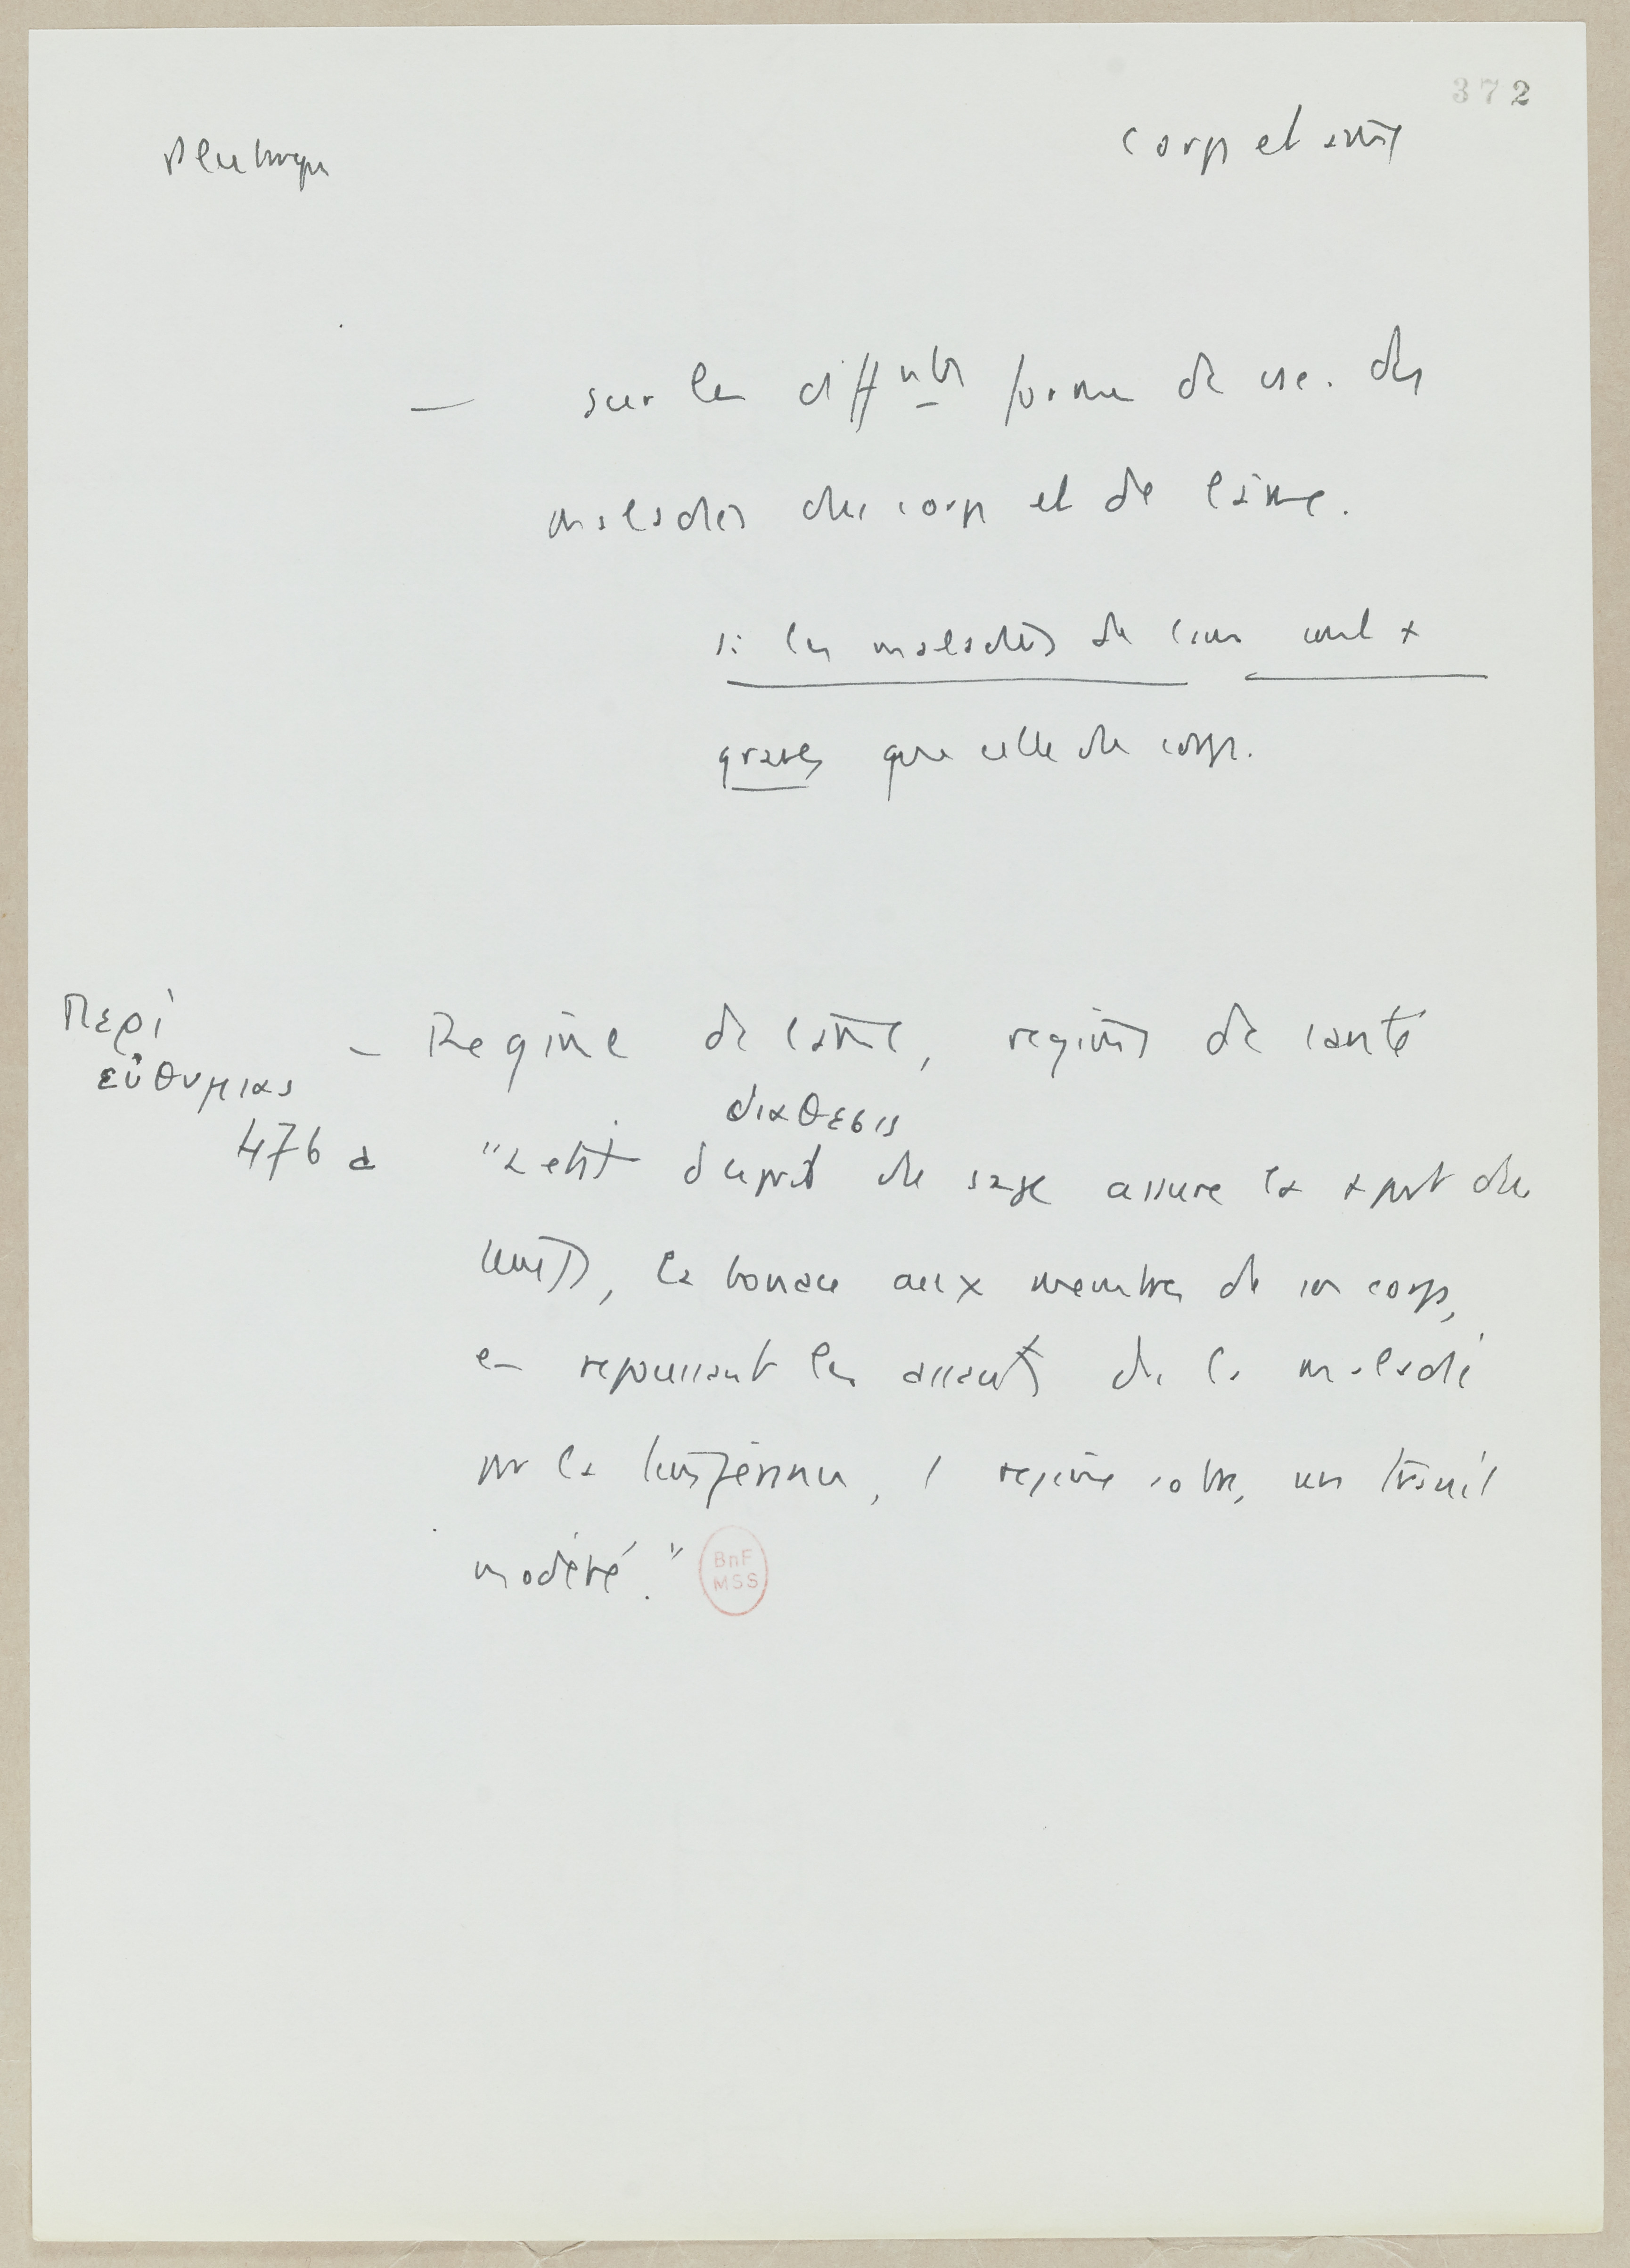 372
Plutarque
corps et âme
— sur les diffntes formes de vie. des
maladies du corps et de l'âme.
si les maladies de l'âme sont +
graves que celles du corps.
Περὶ
εὐθυμιας
476 a
— Régime de l'âme, régimes de santé
διαθεσις
"L'état d'esprit du sage assure la + part du
temps, la bonace aux membres de son corps,
en repoussant les assauts de la maladie
par la tempérance, 1 régime sobre, un travail
modéré."
BnF
MSS